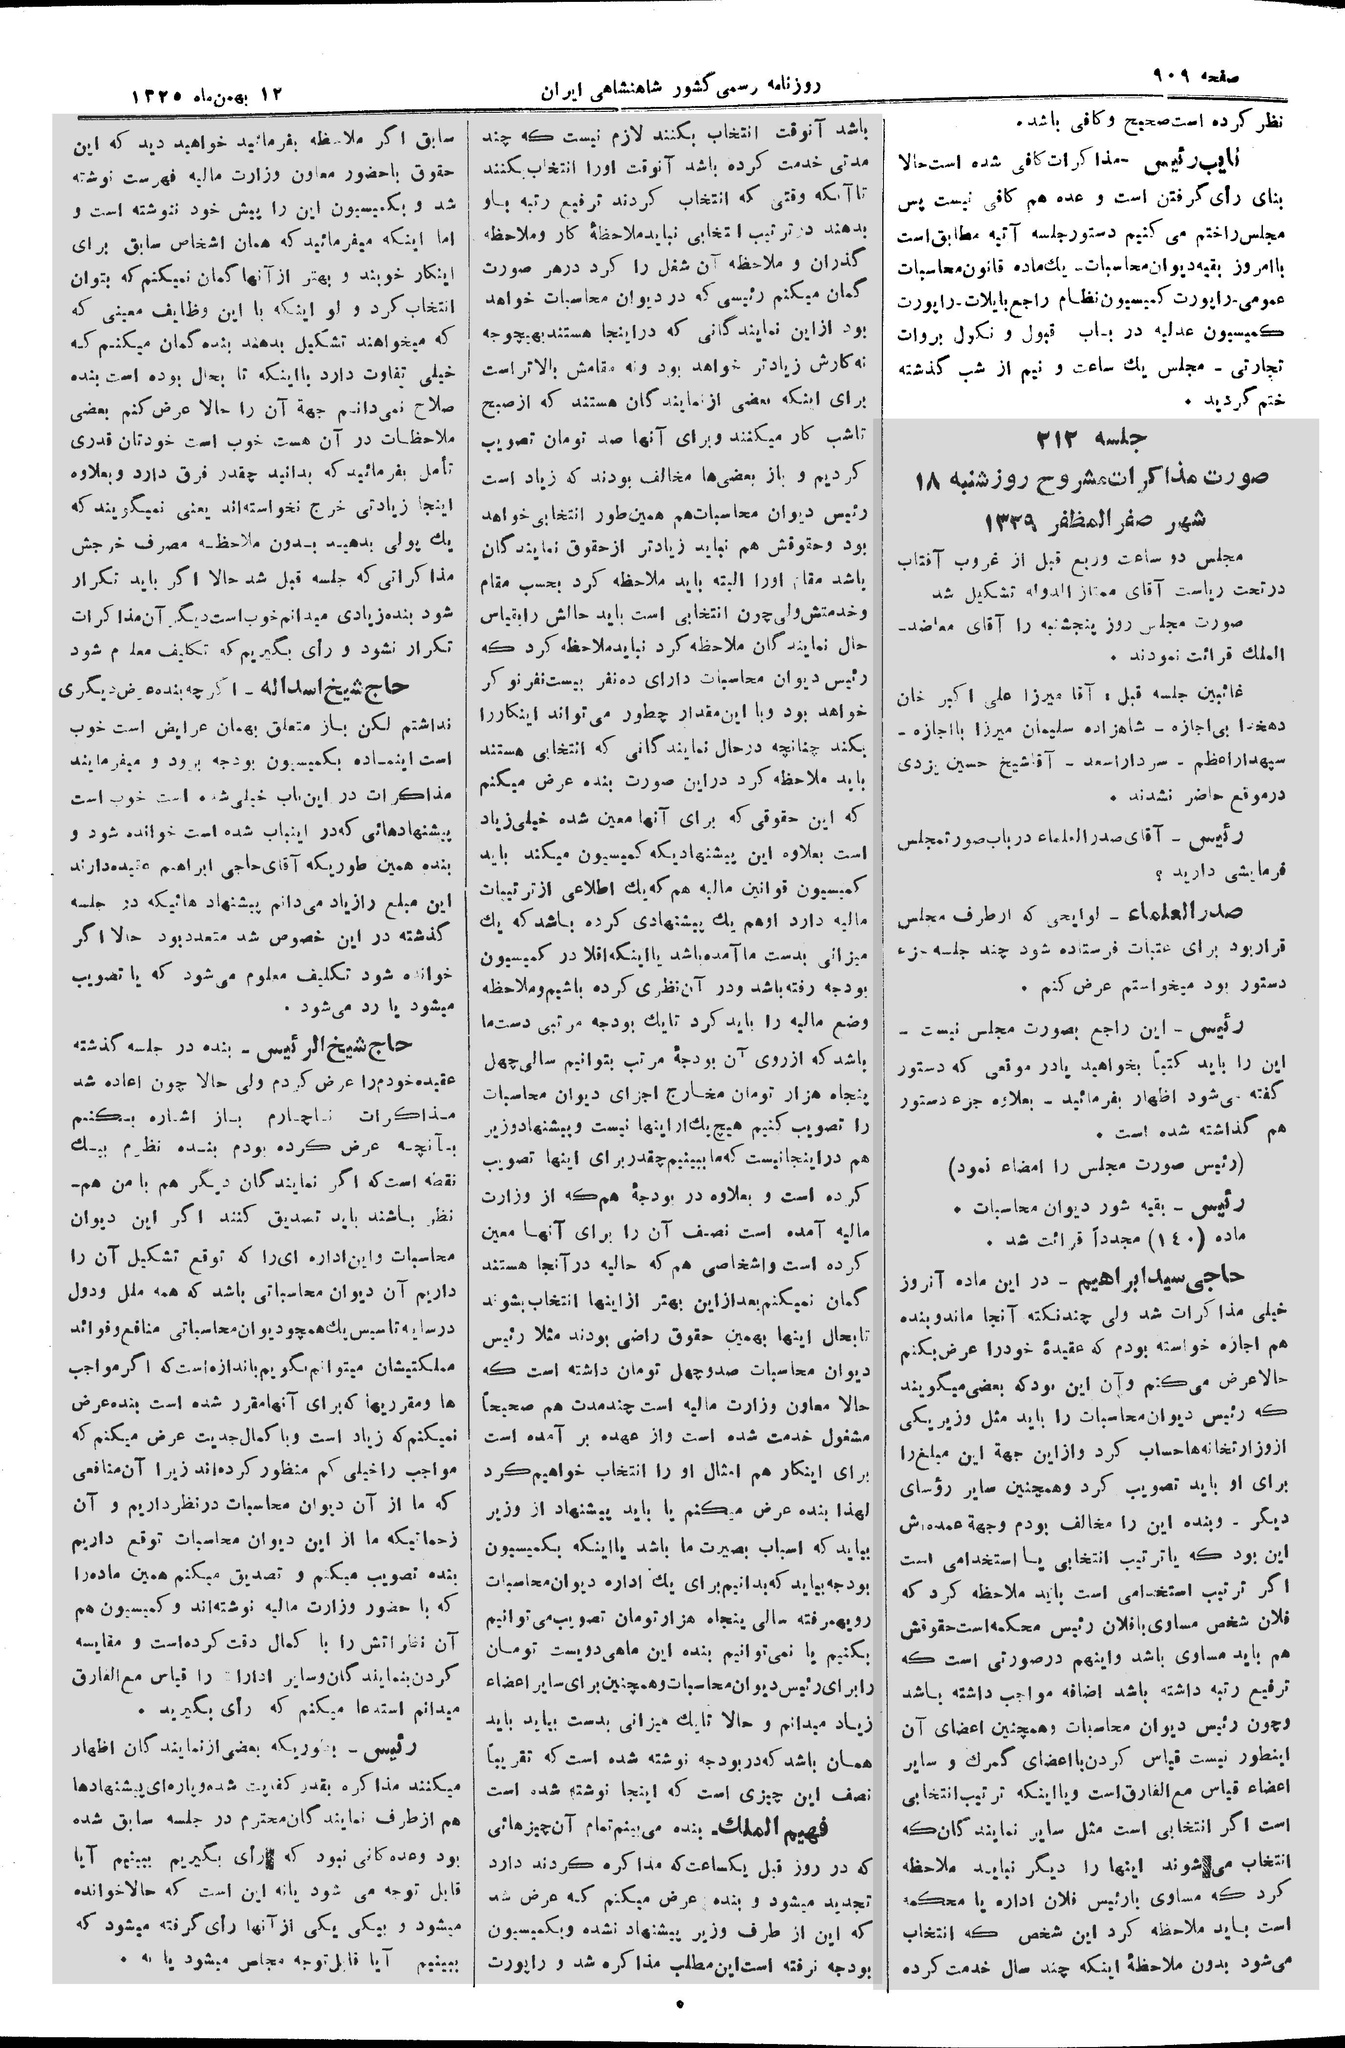 صفحه ۹۰۹
روزنامه رسمی کشور شاهنشاهی ایران
۱۲ بهمن ماه ۱۳۲۵
نظر کرده است صحیح و کافی باشد.
نایب رئیس - مذاکرات کافی شده است حالا
بنای رأی گرفتن است و عده هم کافی نیست پس
مجلس را ختم می کنیم دستور جلسه آتیه مطابق است
با امروز بقیه دیوان محاسبات - یك ماده قانون محاسبات
عمومی - راپورت کمیسیون نظام راجع بایلات - راپورت
کمیسیون عدلیه در باب قبول و نکول بروات
تجارتی - مجلس یك ساعت و نیم از شب گذشته
ختم گردید .
جلسه ۲۱۲
صورت مذاکرات مشروح روز شنبه ۱۸
شهر صفر المظفر ۱۳۲۹
مجلس دو ساعت و ربع قبل از غروب آفتاب
در تحت ریاست آقای ممتاز الدوله تشکیل شد
صورت مجلس روز پنجشنبه را آقای معاضد-
الملك قرائت نمودند .
غائبین جلسه قبل : آقا میرزا علی اکبر خان
دهخدا بی اجازه - شاهزاده سلیمان میرزا با اجازه -
سپهدار اعظم - سردار اسعد - آقا شیخ حسین یزدی
در موقع حاضر نشدند .
رئیس - آقای صدر العلماء در باب صورتمجلس
فرمایشی دارید ؟
صدر العلماء - لوایحی که از طرف مجلس
قرار بود برای عتبات فرستاده شود چند جلسه جزء
دستور بود میخواستم عرض کنم .
رئیس - این راجع بصورت مجلس نیست -
این را باید کتباً بخواهید یا در موقعی که دستور
گفته می شود اظهار بفرمائید - بعلاوه جزء دستور
هم گذاشته شده است .
(رئیس صورت مجلس را امضاء نمود)
رئیس - بقیه شور دیوان محاسبات .
ماده (۱۴۰) مجدداً قرائت شد .
حاجی سید ابراهیم - در این ماده آنروز
خیلی مذاکرات شد ولی چند نکته آنجا ماند و بنده
هم اجازه خواسته بودم که عقیدهٔ خود را عرض بکنم
حالا عرض می کنم و آن این بود که بعضی میگویند
که رئیس دیوان محاسبات را باید مثل وزیر یکی
از وزارتخانه ها حساب کرد و از این جهة این مبلغ را
برای او باید تصویب کرد و همچنین سایر رؤسای
دیگر - و بنده این را مخالف بودم و جهة عمده اش
این بود که یا ترتیب انتخابی یا استخدامی است
اگر ترتیب استخدامی است باید ملاحظه کرد که
فلان شخص مساوی با فلان رئیس محکمه است حقوقش
هم باید مساوی باشد و اینهم در صورتی است که
ترفیع رتبه داشته باشد اضافه مواجب داشته باشد
و چون رئیس دیوان محاسبات و همچنین اعضای آن
اینطور نیست قیاس کردن با اعضای گمرك و سایر
اعضاء قیاس مع الفارق است و یا اینکه ترتیب انتخابی
است اگر انتخابی است مثل سایر نمایندگان که
انتخاب می شوند اینها را دیگر نباید ملاحظه
کرد که مساوی با رئیس فلان اداره یا محکمه
است باید ملاحظه کرد این شخص که انتخاب
می شود بدون ملاحظهٔ اینکه چند سال خدمت کرده
باشد آنوقت انتخاب بکنند لازم نیست که چند
مدتی خدمت کرده باشد آنوقت او را انتخاب بکنند
تا آنکه وقتی که انتخاب کردند ترفیع رتبه باو
بدهند در ترتیب انتخابی نباید ملاحظهٔ کار و ملاحظه
گذران و ملاحظه آن شغل را کرد در هر صورت
گمان میکنم رئیسی که در دیوان محاسبات خواهد
بود از این نمایندگانی که در اینجا هستند بهیچوجه
نه کارش زیادتر خواهد بود و نه مقامش بالاتر است
برای اینکه بعضی از نمایندگان هستند که از صبح
تا شب کار میکنند و برای آنها صد تومان تصویب
کردیم و باز بعضی ها مخالف بودند که زیاد است
رئیس دیوان محاسبات هم همین طور انتخابی خواهد
بود و حقوقش هم نباید زیادتر از حقوق نمایندگان
باشد مقام او را البته باید ملاحظه کرد بحسب مقام
و خدمتش ولی چون انتخابی است باید حالش را بقیاس
حال نمایندگان ملاحظه کرد نباید ملاحظه کرد که
رئیس دیوان محاسبات دارای ده نفر بیست نفر نوکر
خواهد بود و با این مقدار چطور می تواند اینکار را
بکند چنانچه در حال نمایندگانی که انتخابی هستند
باید ملاحظه کرد در این صورت بنده عرض میکنم
که این حقوقی که برای آنها معین شده خیلی زیاد
است بعلاوه این پیشنهادیکه کمیسیون میکند باید
کمیسیون قوانین مالیه هم که یك اطلاعی از ترتیبات
مالیه دارد او هم یك پیشنهادی کرده باشد که یك
میزانی بدست ما آمده باشد یا اینکه اقلا در کمیسیون
بودجه رفته باشد و در آن نظری کرده باشیم و ملاحظه
وضع مالیه را باید کرد تا یك بودجه مرتبی دست ما
باشد که از روی آن بودجهٔ مرتب بتوانیم سالی چهل
پنجاه هزار تومان مخارج اجزای دیوان محاسبات
را تصویب کنیم هیچ یك از اینها نیست و پیشنهاد وزیر
هم در اینجا نیست که ما ببینیم چقدر برای اینها تصویب
کرده است و بعلاوه در بودجهٔ هم که از وزارت
مالیه آمده است نصف آن را برای آنها معین
کرده است و اشخاصی هم که حالیه در آنجا هستند
گمان نمیکنم بعد از این بهتر از اینها انتخاب بشوند
تا بحال اینها بهمین حقوق راضی بودند مثلا رئیس
دیوان محاسبات صد و چهل تومان داشته است که
حالا معاون وزارت مالیه است چند مدت هم صحیحاً
مشغول خدمت شده است و از عهده بر آمده است
برای اینکار هم امثال او را انتخاب خواهیم کرد
لهذا بنده عرض میکنم یا باید پیشنهاد از وزیر
بیاید که اسباب بصیرت ما باشد یا اینکه بکمیسیون
بودجه بیاید که بدانیم برای یك اداره دیوان محاسبات
رویهمرفته سالی پنجاه هزار تومان تصویب می توانیم
بکنیم یا نمی توانیم بنده این ماهی دویست تومان
را برای رئیس دیوان محاسبات و همچنین برای سایر اعضاء
زیاد میدانم و حالا تا یك میزانی بدست بیاید باید
همان باشد که در بودجه نوشته شده است که تقریباً
نصف این چیزی است که اینجا نوشته شده است
فهیم الملك - بنده می بینم تمام آن چیزهائی
که در روز قبل یکساعت که مذاکره کردند دارد
تجدید میشود و بنده عرض میکنم که عرض شد
که این از طرف وزیر پیشنهاد نشده و بکمیسیون
بودجه نرفته است این مطلب مذاکره شد و راپورت
سابق اگر ملاحظه بفرمائید خواهید دید که این
حقوق با حضور معاون وزارت مالیه فهرست نوشته
شد و بکمیسیون این را پیش خود ننوشته است و
اما اینکه میفرمائید که همان اشخاص سابق برای
اینکار خوبند و بهتر از آنها گمان نمیکنم که بتوان
انتخاب کرد و لو اینکه با این وظایف معینی که
که میخواهند تشکیل بدهند بنده گمان میکنم که
خیلی تفاوت دارد با اینکه تا بحال بوده است بنده
صلاح نمی دانم جهة آن را حالا عرض کنم بعضی
ملاحظات در آن هست خوب است خودتان قدری
تأمل بفرمائید که بدانید چقدر فرق دارد و بعلاوه
اینجا زیادتی خرج نخواسته اند یعنی نمیگویند که
یك پولی بدهید بدون ملاحظه مصرف خرجش
مذاکراتی که جلسه قبل شد حالا اگر باید تکرار
شود بنده زیادی میدانم خوب است دیگر آن مذاکرات
تکرار نشود و رأی بگیریم که تکلیف معلوم شود
حاج شیخ اسداله - اگر چه بنده عرض دیگری
نداشتم لکن باز متعلق بهمان عرایض است خوب
است اینماده بکمیسیون بودجه برود و میفرمایند
مذاکرات در این باب خیلی شده است خوب است
پیشنهادهائی که در اینباب شده است خوانده شود و
بنده همین طوریکه آقای حاجی ابراهیم عقیده دارند
این مبلغ را زیاد می دانم پیشنهاد هائیکه در جلسه
گذشته در این خصوص شد متعدد بود حالا اگر
خوانده شود تکلیف معلوم می شود که یا تصویب
میشود یا رد می شود .
حاج شیخ الرئیس - بنده در جلسه گذشته
عقیده خودم را عرض کردم ولی حالا چون اعاده شد
مذاکرات ناچارم باز اشاره بکنم
بآنچه عرض کرده بودم بنده نظرم بیك
نقطه است که اگر نمایندگان دیگر هم با من هم-
نظر باشند باید تصدیق کنند اگر این دیوان
محاسبات و این اداره ای را که توقع تشکیل آن را
داریم آن دیوان محاسباتی باشد که همه ملل و دول
در سایه تاسیس یك همچو دیوان محاسباتی منافع و فوائد
مملکتیشان میتوانم بگویم باندازه است که اگر مواجب
ها و مقرریها که برای آنها مقرر شده است بنده عرض
نمیکنم که زیاد است و با کمال جدیت عرض میکنم که
مواجب را خیلی کم منظور کرده اند زیرا آن منافعی
که ما از آن دیوان محاسبات در نظر داریم و آن
زحماتیکه ما از این دیوان محاسبات توقع داریم
بنده تصویب میکنم و تصدیق میکنم همین ماده را
که با حضور وزارت مالیه نوشته اند و کمیسیون هم
آن نظراتش را با کمال دقت کرده است و مقایسه
کردن بنمایندگان و سایر ادارات را قیاس مع الفارق
میدانم استدعا میکنم که رأی بگیرید .
رئیس - بطوریکه بعضی از نمایندگان اظهار
میکنند مذاکره بقدر کفایت شده و پاره ای پیشنهادها
هم از طرف نمایندگان محترم در جلسه سابق شده
بود و عده کافی نبود که رأی بگیریم ببینیم آیا
قابل توجه می شود یا نه این است که حالا خوانده
میشود و بیکی یکی از آنها رأی گرفته میشود که
ببینیم آیا قابل توجه مجلس میشود یا نه .